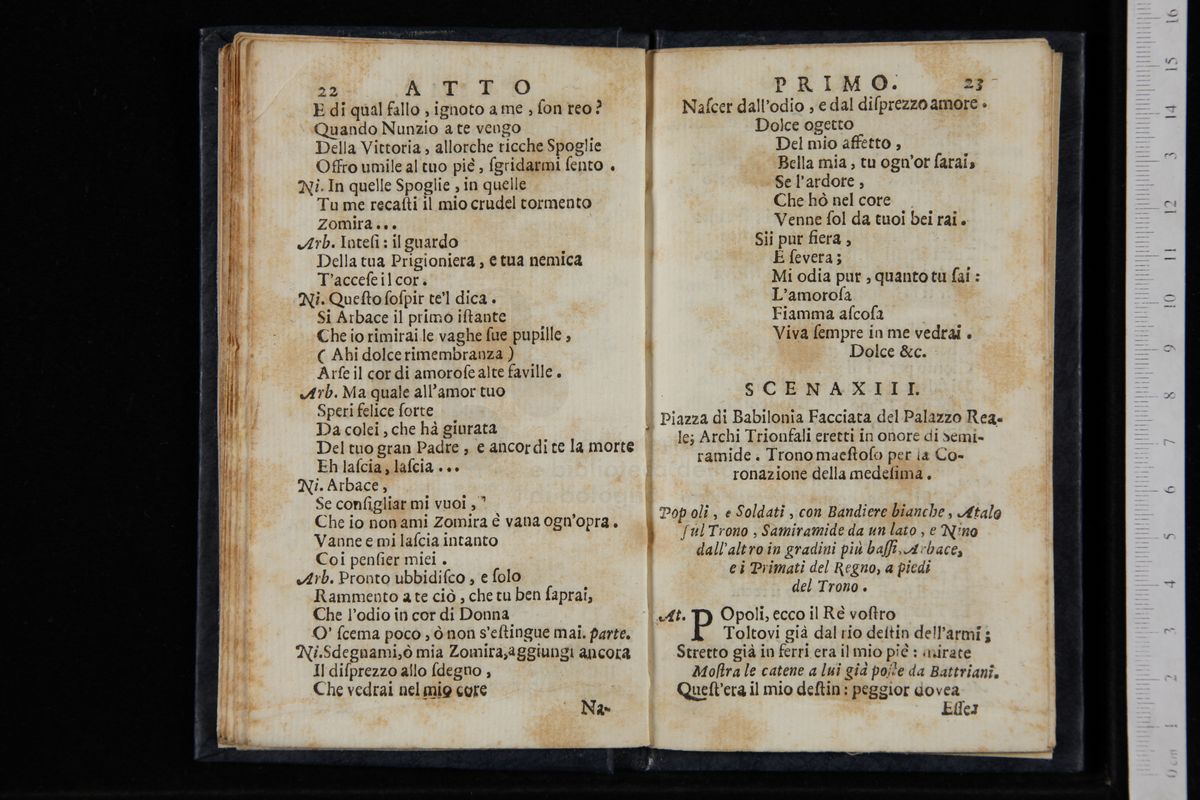 22 ATTO
E di qual fallo, ignoto a me, ſon reo?
Quando Nunzio a te vengo
Della Vittoria, allorche ricche Spoglie
Offro umile al tuo piè, ſgridarmi ſento.
Ni. In quelle Spoglie, in quelle
Tu me recaſti il mio crudel tormento
Zomira...
Arb. Inteſi: il guardo
Della tua Prigioniera, e tua nemica
T'acceſe il cor.
Ni. Queſto ſoſpir te'l dica.
Si Arbace il primo iſtante
Che io rimirai le vaghe ſue pupille,
( Ahi dolce rimembranza )
Arſe il cor di amoroſe alte faville.
Arb. Ma quale all'amor tuo
Speri felice ſorte
Da colei, che hà giurata
Del tuo gran Padre, e ancor di te la morte
Eh laſcia, laſcia...
Ni. Arbace,
Se conſigliar mi vuoi,
Che io non ami Zomira è vana ogn'opra.
Vanne e mi laſcia intanto
Co i penſier miei.
Arb. Pronto ubbidiſco, e ſolo
Rammento a te ciò, che tu ben ſaprai,
Che l'odio in cor di Donna
O' ſcema poco, ò non s'eſtingue mai. parte.
Ni. Sdegnami, ò mia Zomira, aggiungi ancora
Il diſprezzo allo ſdegno,
Che vedrai nel mio core
Na-
PRIMO. 23
Naſcer dall'odio, e dal diſprezzo amore.
Dolce ogetto
Del mio affetto,
Bella mia, tu ogn'or ſarai,
Se l'ardore,
Che hò nel core
Venne ſol da tuoi bei rai.
Sii pur fiera,
E ſevera;
Mi odia pur, quanto tu ſai:
L'amoroſa
Fiamma aſcoſa
Viva ſempre in me vedrai.
Dolce &c.
SCENA XIII.
Piazza di Babilonia Facciata del Palazzo Rea-
le; Archi Trionfali eretti in onore di Semi-
ramide. Trono maeſtoſo per la Co-
ronazione della medeſima.
Popoli, e Soldati, con Bandiere bianche, Atalo
ſul Trono, Samiramide da un lato, e Nino
dall'altro in gradini più baſſi, Arbace,
e i Primati del Regno, a piedi
del Trono.
At. POpoli, ecco il Rè voſtro
Toltovi già dal rio deſtin dell'armi;
Stretto già in ferri era il mio piè: mirate
Moſtra le catene a lui già poſte da Battriani.
Queſt'era il mio deſtin: peggior dovea
Eſſer